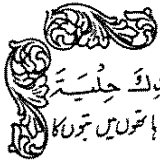 حِلْيَةَ
ہاتھوں میں بتوں کا